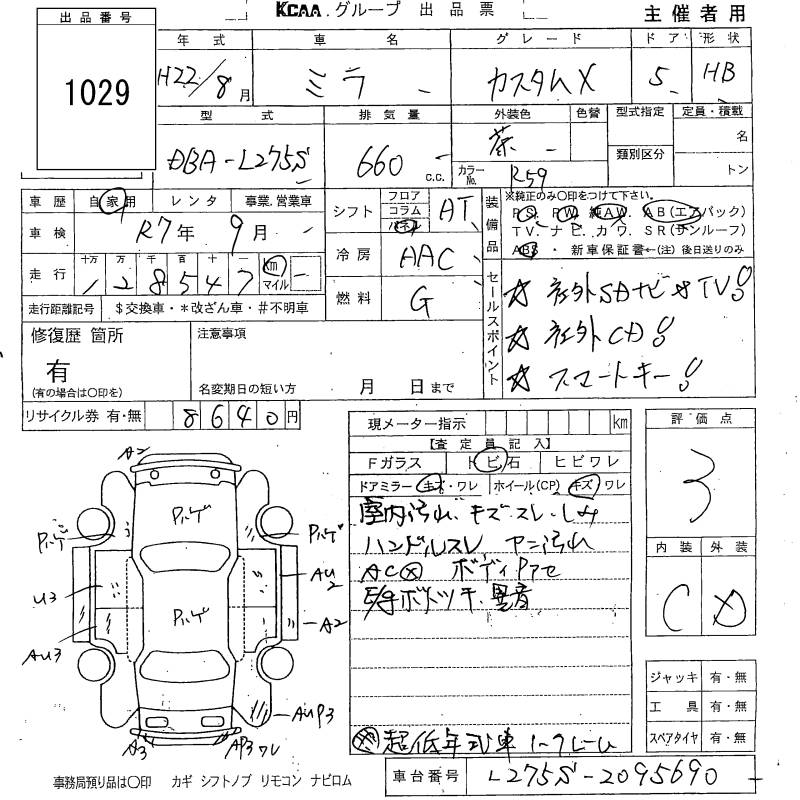 KCAA.グループ 出品票
主催者用
出品番号
1029
年式 車名 グレード ドア 形状
H22/8月 ミラ カスタムX 5 HB
型式 排気量 外装色 色替 型式指定 定員・積載
DBA-L275S 660 c.c. 茶 類別区分 名
カラーNo. R59 トン
車歴 自家用 レンタ 事業.営業車
シフト フロア コラム AT
装備品 ※純正のみ〇印をつけて下さい。
PS. PW. 純AW. AB(エアバック)
車検 R7年 9月
TV.ナビ.カワ.SR(サンルーフ)
ABS・新車保証書←(注)後日送りのみ
冷房 AAC
走行 十万 万 千 百 十 一
128547 km マイル
燃料 G
走行距離記号 $交換車・*改ざん車・#不明車
セールスポイント
☆社外SDナビ TV!!
☆社外CD!!
☆スマートキー!!
修復歴 箇所
有
(有の場合は〇印を)
注意事項
名変期日の短い方 月 日まで
リサイクル券 有・無 8640円
現メーター指示 km
【査定員記入】
Fガラス トビ石 ヒビワレ
ドアミラー キズ・ワレ ホイール(CP) キズ ワレ
室内汚れ.キズ.スレ.しみ
ハンドルスレ ヤニ汚れ
AC ボディ
異音
超低年式車
評価点
3
内装 外装
C D
ジャッキ 有・無
工具 有・無
スペアタイヤ 有・無
A2
Pハゲ
Pハゲ
Pハゲ
AU2
U3
Pハゲ
A2
AU3
AUP3
A3
AP3ワレ
事務局預り品は〇印 カギ シフトノブ リモコン ナビロム
車台番号 L275S-2095690